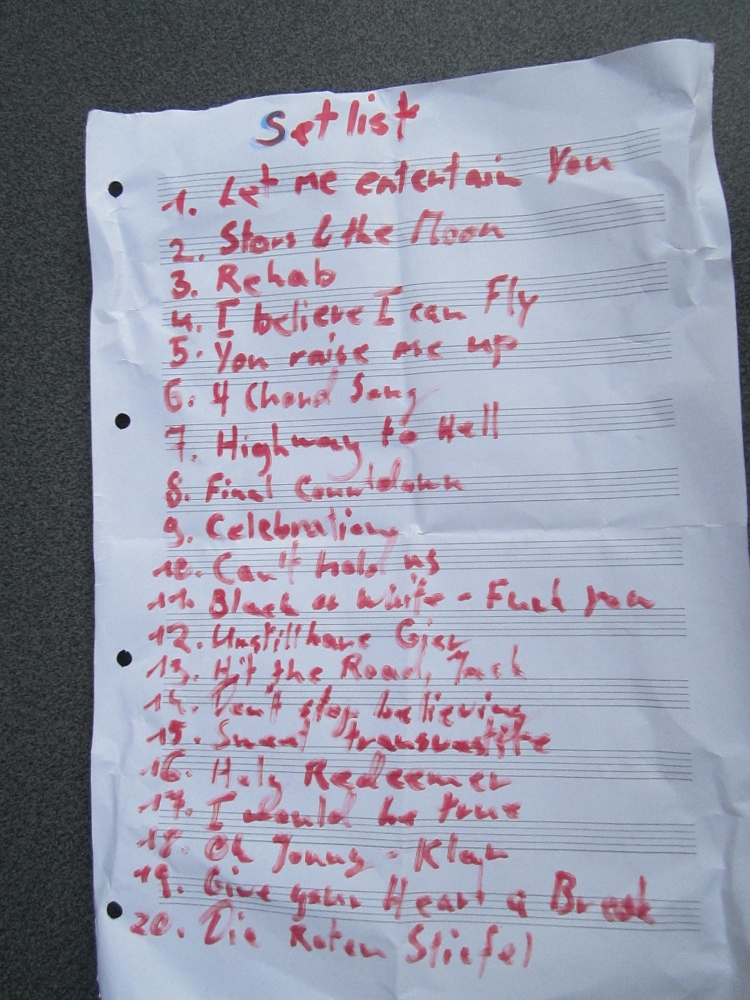 Setlist
1. Let me entertain You
2. Stars & the Moon
3. Rehab
4. I believe I can Fly
5. You raise me up
6. 4 Chord Song
7. Highway to Hell
8. Final Countdown
9. Celebration
10. Can't hold us
11. Black or White - Fuck you
12. Unstillbare Gier
13. Hit the Road, Jack
14. Don't stop believing
15. Sweet transvestite
16. Holy Redeemer
17. I would be true
18. Oh Jonny -
19. Give your Heart a Break
20. Die Roten Stiefel